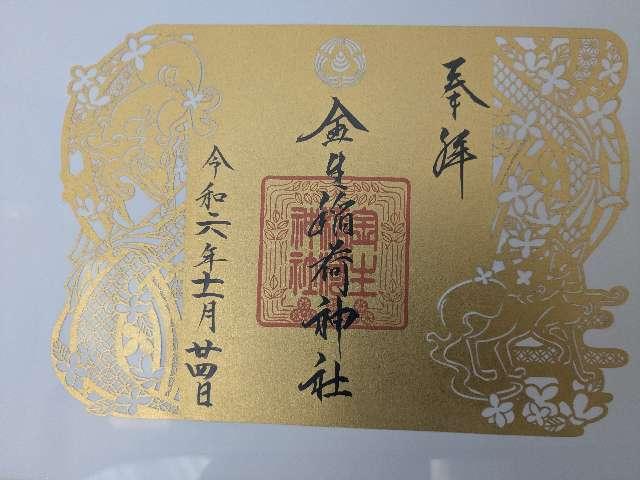 奉拝
金生稲荷神社
金生稲荷神社
令和六年十一月廿四日